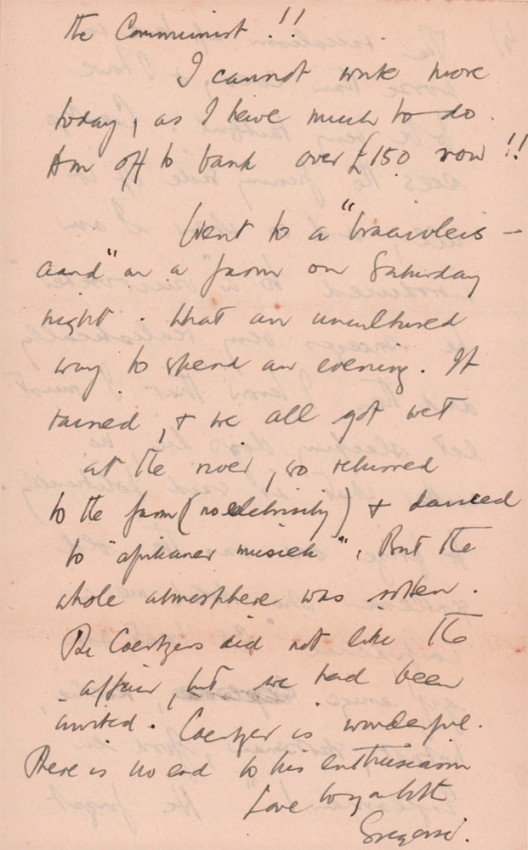 the Communist !!
I cannot write more
today, as I have much to do.
Am off to bank over £150 now !!
Went to a "braaivleis –
aand" on a farm on Saturday
night. What an uncultured
way to spend an evening. It
rained, & we all got wet
at the river, so returned
to the farm (no electricity) & danced
to "afrikaner musiek". But the
whole atmosphere was rotten.
The Coertzers did not like the
affair, but we had been
invited. Coertzer is wonderful.
There is no end to his enthusiasm
Love to you both